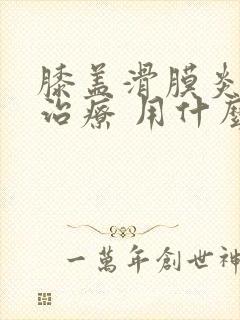 膝盖滑膜炎
治療 用什麼
一萬年創世神